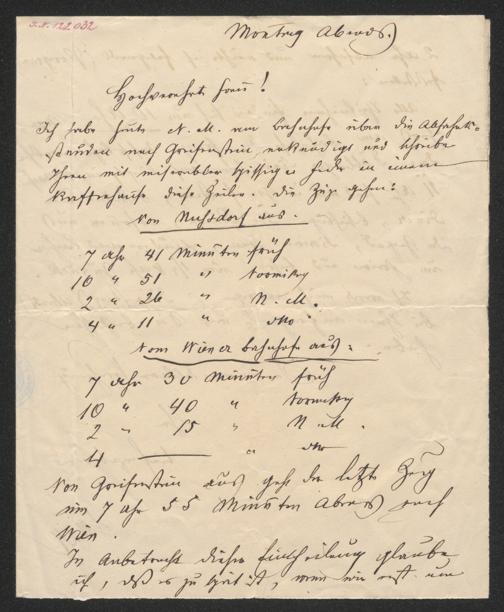 I.N. 122032
Montag Abends.)
Hochverehrte Frau!
Ich habe heute N. M. am Bahnhofe über die Abfahrts-
stunden nach Greifenstein erkundigt und schreibe
Ihnen mit miserabler spitziger Feder in einem
Kaffeehause diese Zeilen. Die Züge gehen:
Von Nussdorf aus.
7 Uhr 41 Minuten früh
10 " 51 " Vormittag
2 " 26 " N. M.
4 " 11 " dto
Vom Wiener Bahnhofe aus:
7 Uhr 30 Minuten früh
10 " 40 " Vormittag
2 " 15 " N. M.
4 — " dto
Von Greifenstein aus geht der letzte Zug
um 7 Uhr 55 Minuten Abends nach
Wien.
In Anbetracht dieser Eintheilung glaube
ich, daß es zu spät ist, wenn wir erst um